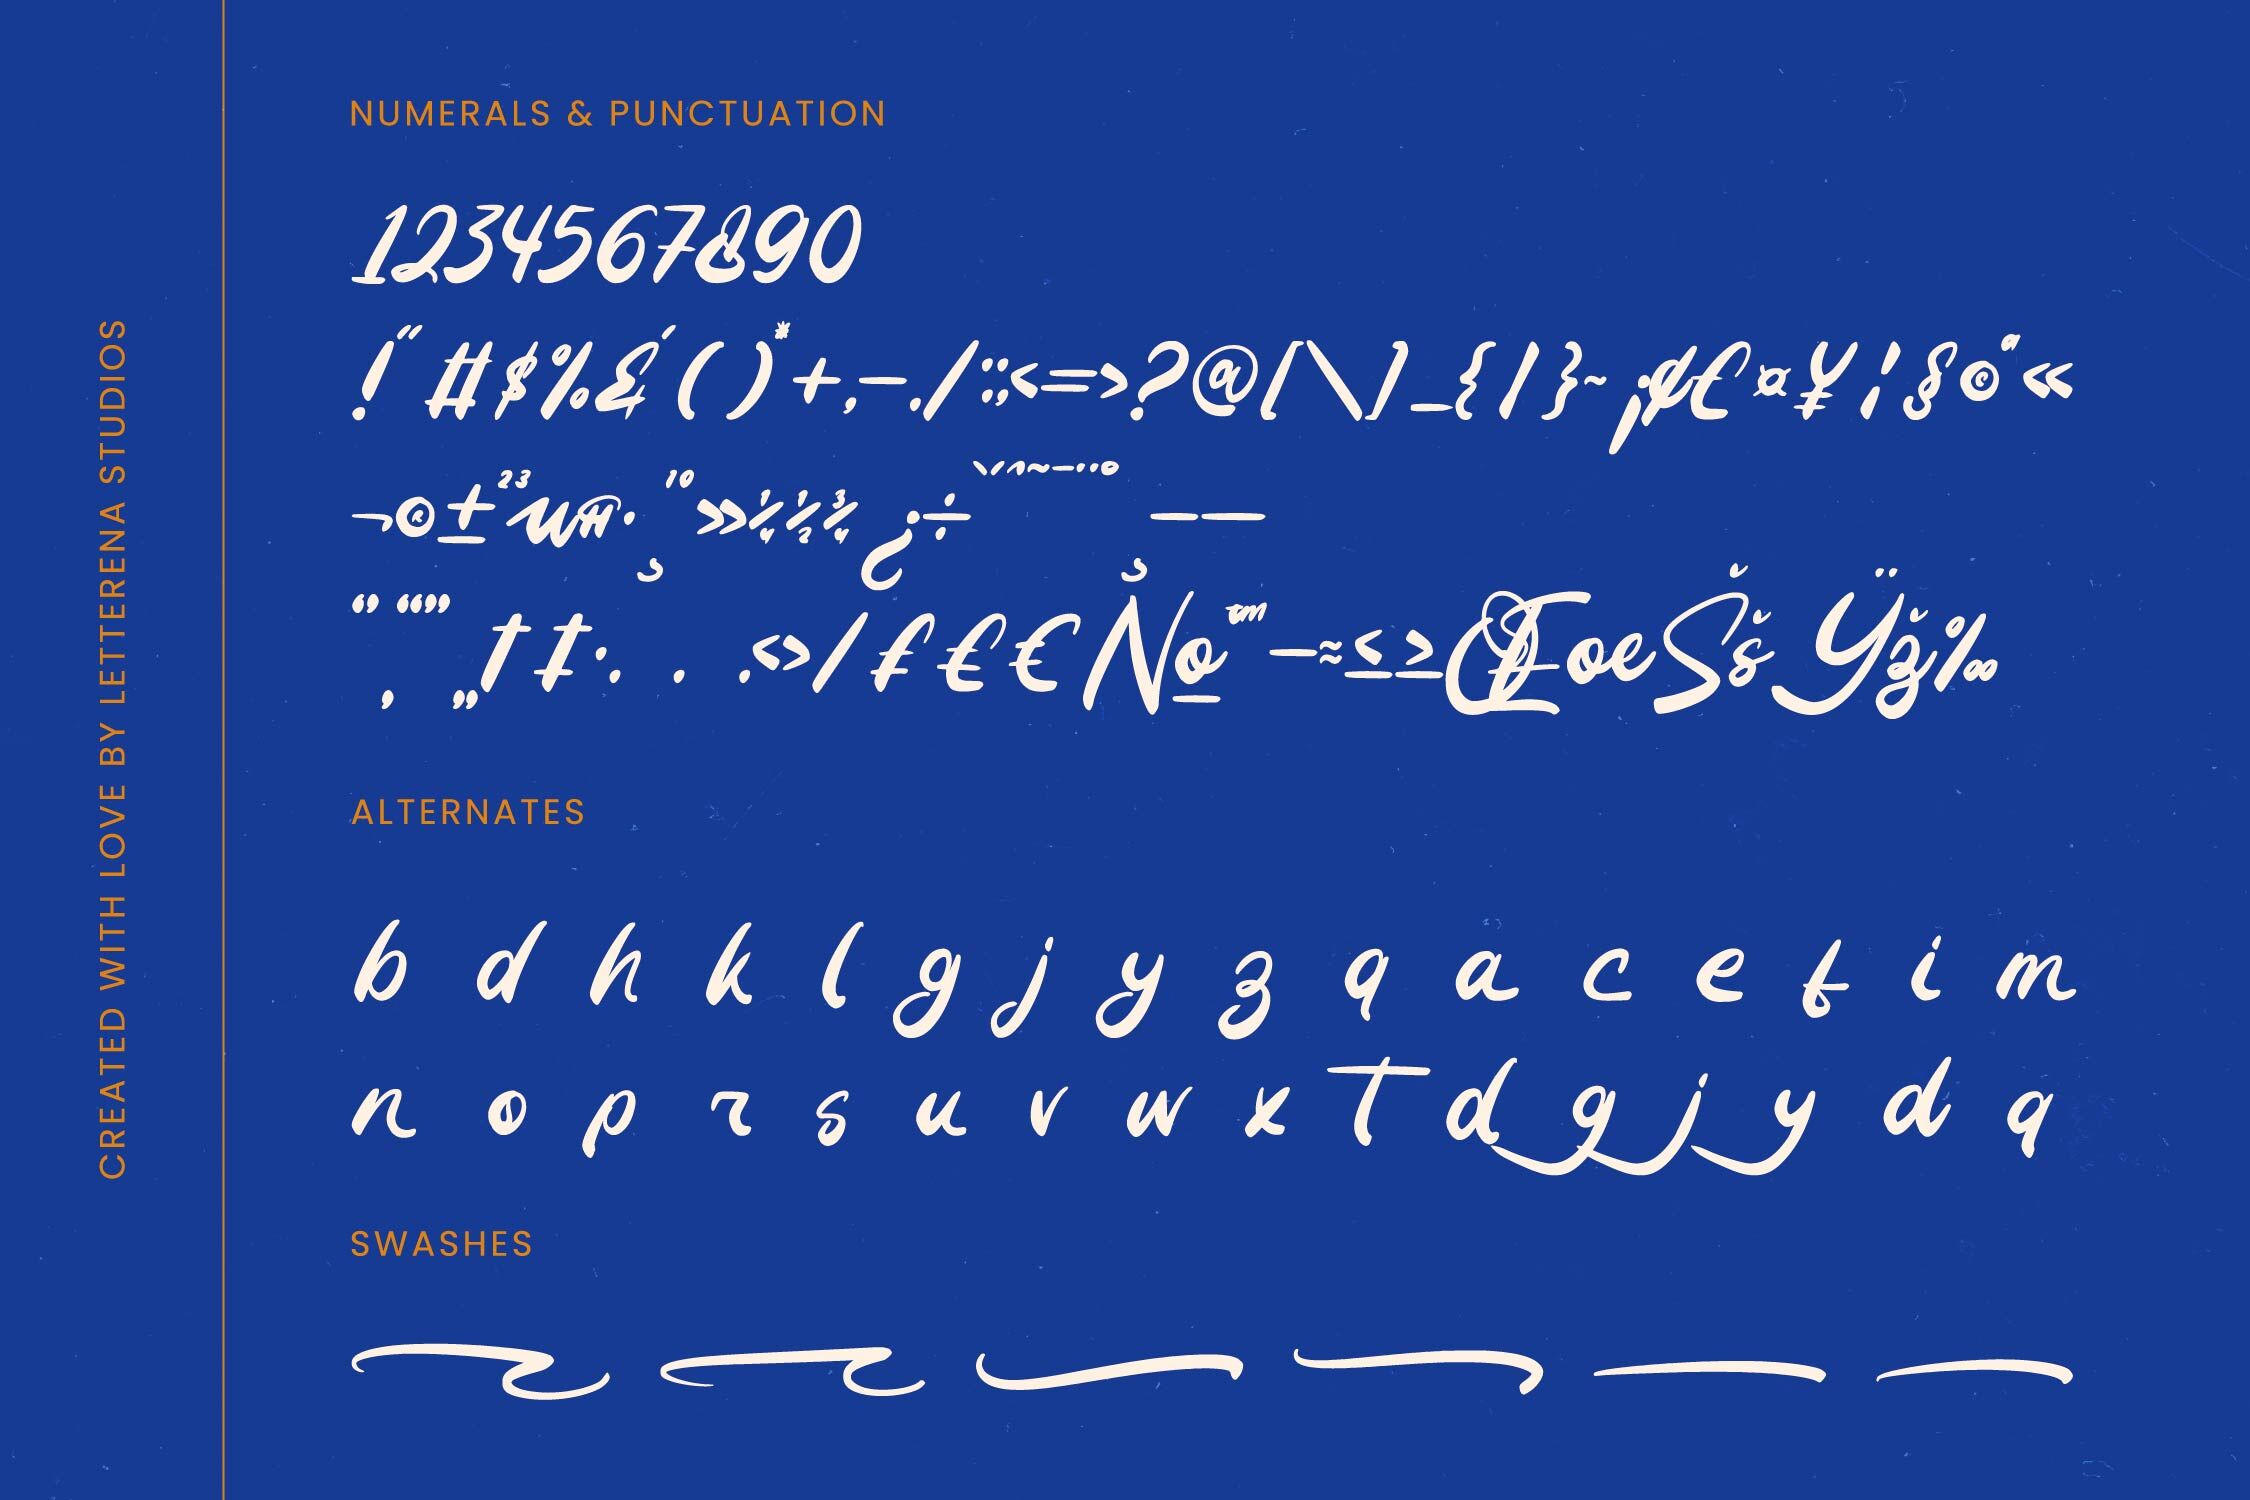 NUMERALS & PUNCTUATION
1234567890
!"#$%&'()*+,-./:;<=>?@[\]_{|}~¡¢£¤¥¦§©ª«
¬®±²³µ¶·¸¹º»¼½¾¿÷ˋˊˆ˜¯˙¨˚¸–—
‘’‚“”„†‡•. . …‹›⁄₣₤€№™−≈≤≥ŒœŠšŸž‰
ALTERNATES
b d h k l g j y z q a c e f i m
n o p r s u v w x T d g j y d q
SWASHES
CREATED WITH LOVE BY LETTERENA STUDIOS